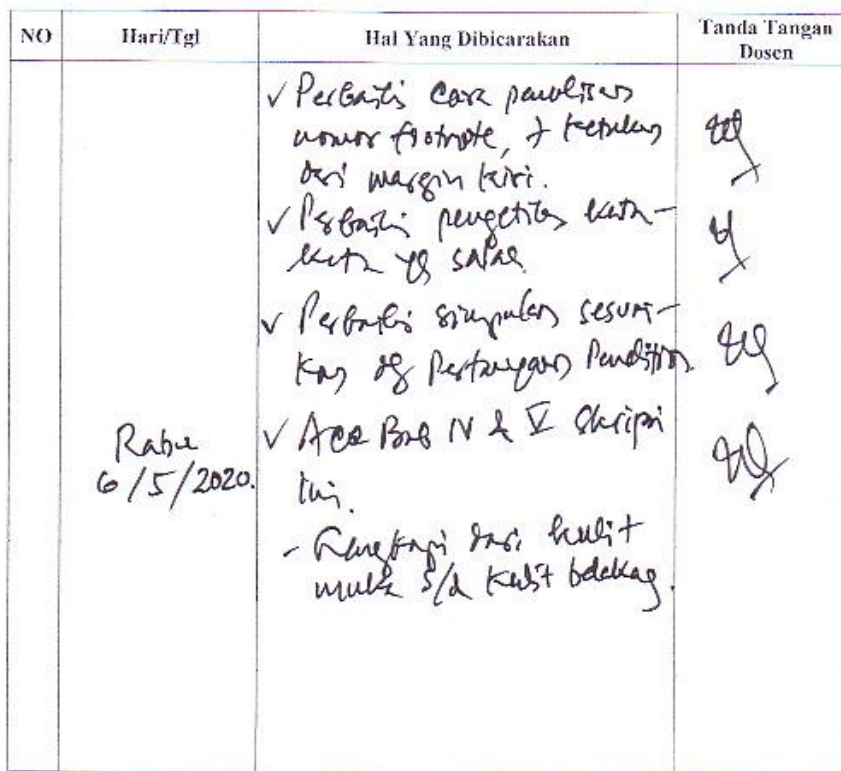 NO Hari/Tgl Hal Yang Dibicarakan Tanda Tangan
Dosen
✓ Perbaiki cara penulisan
nomor footnote, 7 ketukan
dari margin kiri.
✓ Perbaiki pengetikan kata-
kata yg salah
✓ Perbaiki simpulan sesuai-
kan dg Pertanyaan Penelitian
Rabu
6/5/2020.
✓ Acc Bab IV & V Skripsi
ini.
- Lengkapi dari kulit
muka s/d kulit belakang.